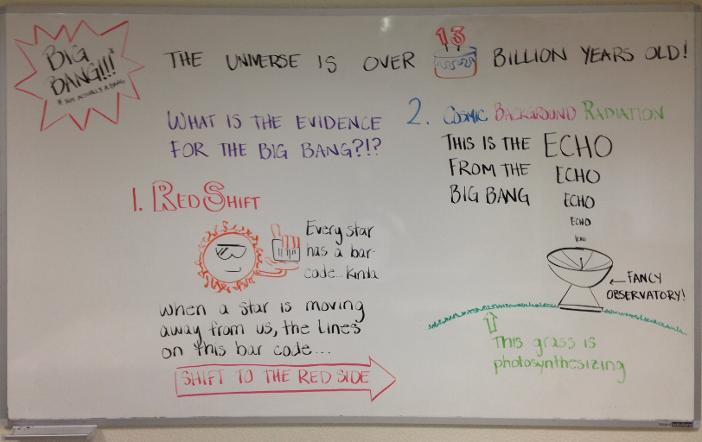 BIG
BANG!!!*
* NOT ACTUALLY A BANG
THE UNIVERSE IS OVER 13 BILLION YEARS OLD!
WHAT IS THE EVIDENCE
FOR THE BIG BANG?!?
1. RED SHIFT
Every star
has a bar
code... kinda
When a star is moving
away from us, the lines
on this bar code...
SHIFT TO THE RED SIDE
2. COSMIC BACKGROUND RADIATION
THIS IS THE ECHO
FROM THE ECHO
BIG BANG ECHO
ECHO
ECHO
FANCY
OBSERVATORY!
This grass is
photosynthesizing